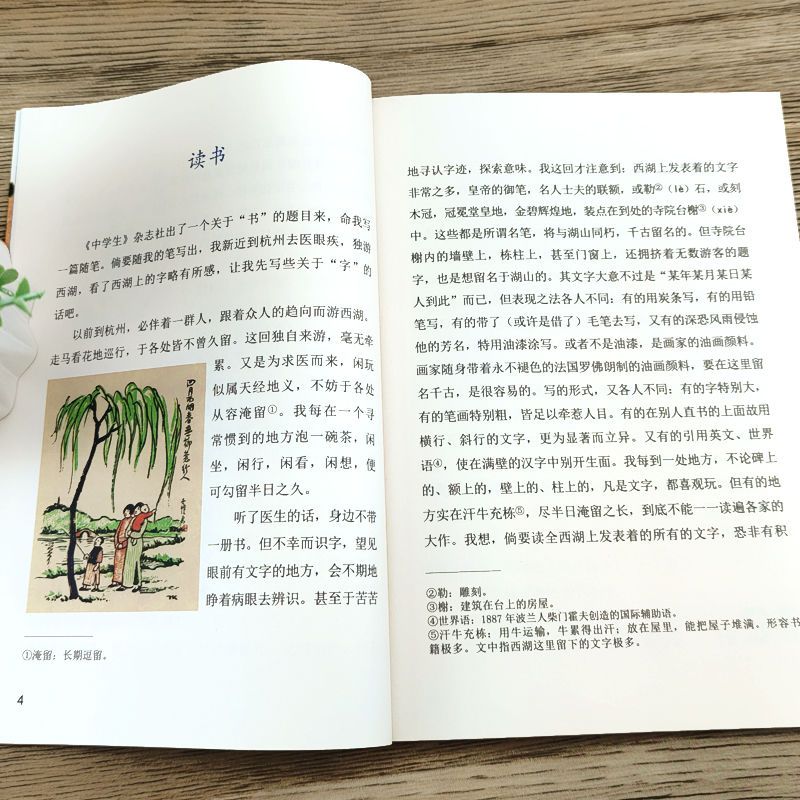 读书
《中学生》杂志社出了一个关于“书”的题目来，命我写
一篇随笔。倘要随我的笔写出，我新近到杭州去医眼疾，独游
西湖，看了西湖上的字略有所感，让我先写些关于“字”的
话吧。
以前到杭州，必伴着一群人，跟着众人的趋向而游西湖。
走马看花地巡行，于各处皆不曾久留。这回独自来游，毫无牵
累。又是为求医而来，闲玩
似属天经地义，不妨于各处
从容淹留①。我每在一个寻
常惯到的地方泡一碗茶，闲
坐，闲行，闲看，闲想，便
可勾留半日之久。
听了医生的话，身边不带
一册书。但不幸而识字，望见
眼前有文字的地方，会不期地
睁着病眼去辨识。甚至于苦苦
①淹留：长期逗留。
4
地寻认字迹，探索意味。我这回才注意到：西湖上发表着的文字
非常之多，皇帝的御笔，名人士夫的联额，或勒②（lè）石，或刻
木冠，冠冕堂皇地，金碧辉煌地，装点在到处的寺院台榭③（xiè）
中。这些都是所谓名笔，将与湖山同朽，千古留名的。但寺院台
榭内的墙壁上，栋柱上，甚至门窗上，还拥挤着无数游客的题
字，也是想留名于湖山的。其文字大意不过是“某年某月某日某
人到此”而已，但表现之法各人不同：有的用炭条写，有的用铅
笔写，有的带了（或许是借了）毛笔去写，又有的深恐风雨侵蚀
他的芳名，特用油漆涂写。或者不是油漆，是画家的油画颜料。
画家随身带着永不褪色的法国罗佛朗制的油画颜料，要在这里留
名千古，是很容易的。写的形式，又各人不同：有的字特别大，
有的笔画特别粗，皆足以牵惹人目。有的在别人直书的上面故用
横行、斜行的文字，更为显著而立异。又有的引用英文、世界
语④，使在满壁的汉字中别开生面。我每到一处地方，不论碑上
的、额上的，壁上的、柱上的，凡是文字，都喜观玩。但有的地
方实在汗牛充栋⑤，尽半日淹留之长，到底不能一一读遍各家的
大作。我想，倘要读全西湖上发表着的所有的文字，恐非有积
②勒：雕刻。
③榭：建筑在台上的房屋。
④世界语：1887年波兰人柴门霍夫创造的国际辅助语。
⑤汗牛充栋：用牛运输，牛累得出汗；放在屋里，能把屋子堆满。形容书
籍极多。文中指西湖这里留下的文字极多。